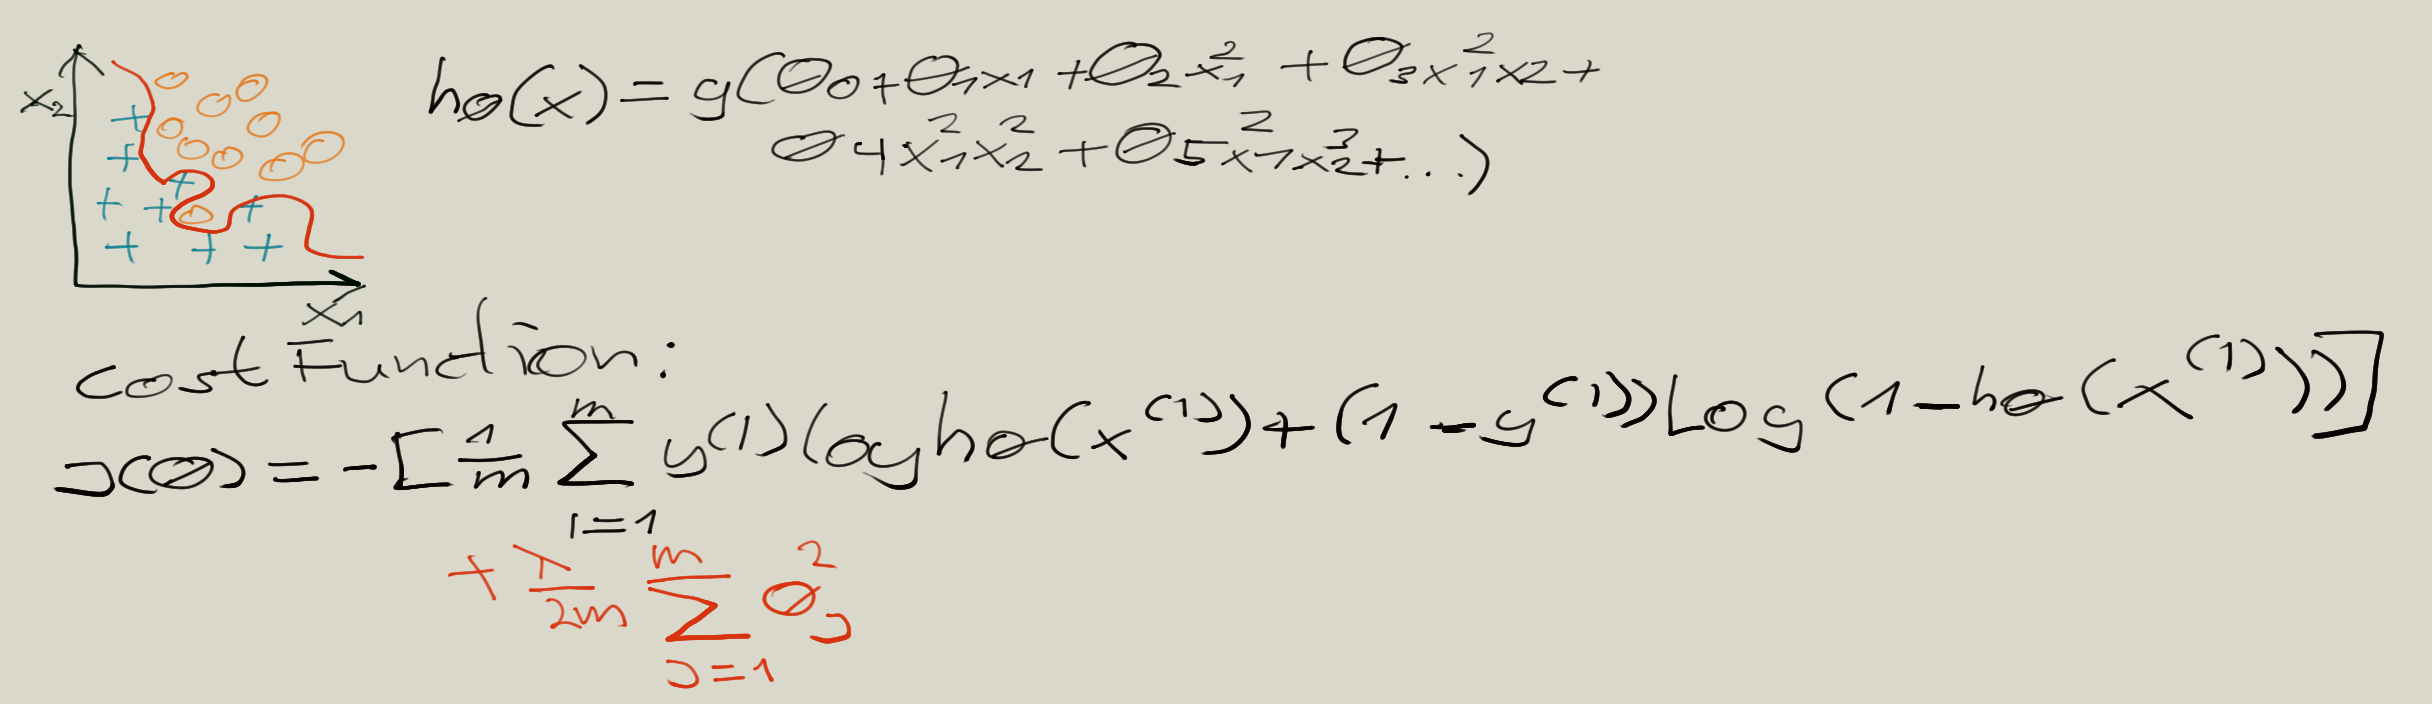 x₂
hθ(x) = g(θ₀ + θ₁x₁ + θ₂x₁² + θ₃x₁²x₂ +
θ₄x₁²x₂² + θ₅x₁²x₂³ + ...)
x₁
cost Function:
J(θ) = -[1/m ∑ᵢ₌₁ᵐ y⁽¹⁾ log hθ(x⁽¹⁾) + (1 - y⁽¹⁾) Log(1 - hθ(x⁽¹⁾))]
+ λ/2m ∑ⱼ₌₁ᵐ θⱼ²